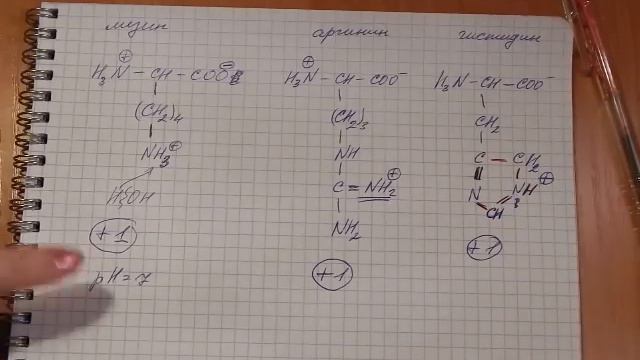 лизин
H₃N⊕ – CH – COO⊖
(CH₂)₄
NH₃⊕
+1
pH = 7
аргинин
H₃N⊕ – CH – COO⁻
(CH₂)₃
NH
C = NH₂⊕
NH₂
+1
гистидин
H₃N – CH – COO⁻
CH₂
C – CH₂
N NH⊕
CH
+1